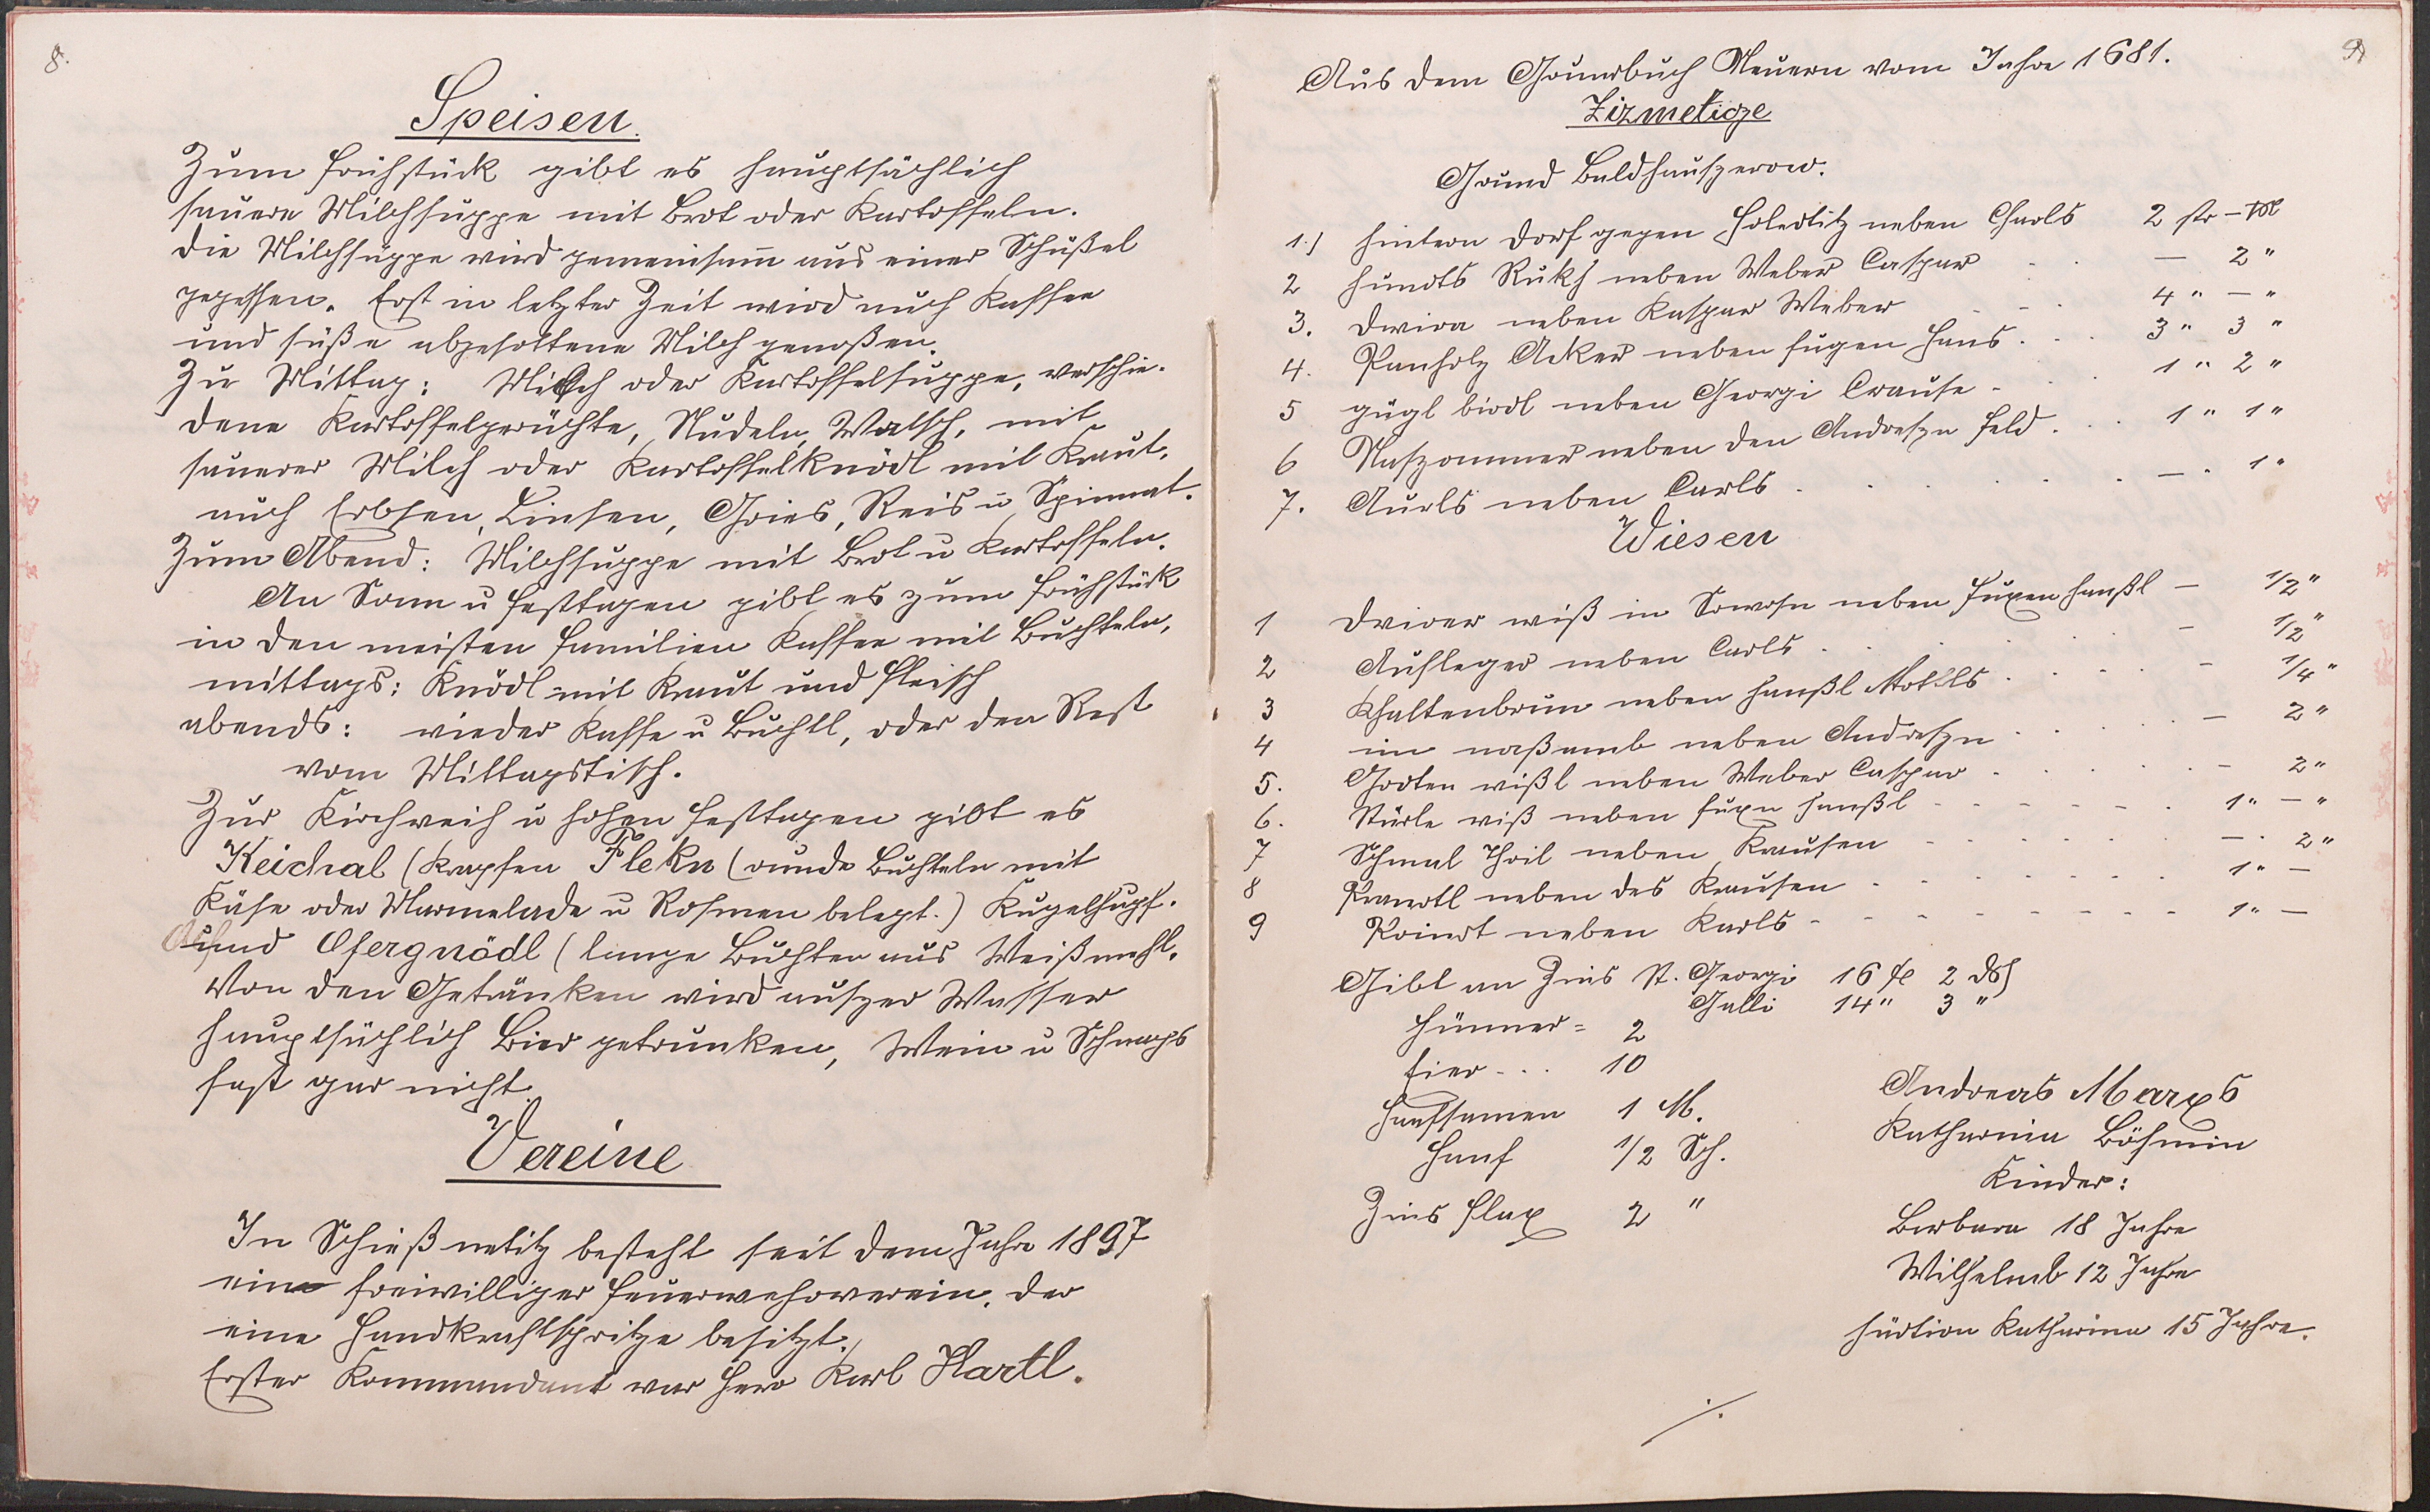 8.
Speisen.
Zum Frühstück gibt es hauptsächlich
sauere Milchsuppe mit Brot oder Kartoffeln.
Die Milchsuppe wird gemeinsam aus einer Schüßel
gegessen. Erst in letzter Zeit wird auch Kaffee
und süße abgesottene Milch genoßen.
Zu Mittag: Milch oder Kartoffelsuppe, verschie-
dene Kartoffelgerichte, Nudeln, Watsch, mit
sauerer Milch oder Kartoffelknödl mit Kraut,
auch Erbsen, Linsen, Gries, Reis u Spinnat.
Zum Abend: Milchsuppe mit Brot u Kartoffeln.
An Sonn u Festtagen gibt es zum Frühstück
in den meisten Familien Kaffee mit Buchteln,
mittags: Knödl mit Kraut und Fleisch
abends: wieder Kaffe u Buchtl, oder den Rest
vom Mittagstisch.
Zur Kirchweih u hohen Festtagen gibt es
Keichal (Krapfen Flekn (runde Buchteln mit
Käse oder Marmelade u Rosinen belegt.) Kugelhupf.
und Ofergnödl (lange Buchten aus Weißmehl.
Von den Getränken wird auszer Wasser
hauptsächlich Bier getrunken, Wein u Schnaps
fast gar nicht.
Vereine
In Schießnetitz besteht seit dem Jahre 1897
ein freiwilliger Feuerwehrverein, der
eine Handkraftspritze besitzt.
Erster Kommandant war Herr Karl Hartl.
9
Aus dem Grundbuch Neuern vom Jahre 1681.
Zizmetitze
Grund Baldhauszerow.
1.) hintern Dorf gegen Holedlitz neben Charls 2 str - M
2 hundts Rukh neben Weber Caspar — 2 "
3. Dwira neben Kaspar Weber 4 " — "
4. Panholz Acker neben Fugen Hans . . . 3 " 3 "
5 gügl birdl neben Georgi Crause - 1 " 2 "
6 Naszommer neben den Andreszn Feld . . . 1 " 1 "
7. Aurls neben Carls . . . . . — . 1 "
Wiesen
1 Driver wiß in Sowosn neben Fuxen Hanßl — 1/2 "
2 Aufleger neben Carls . . . - 1/2 "
3 Khaltenbrun neben Hanßl Motlls . . . - 1/4 "
4 im naßamb neben Andreszn . . . — 2 "
5. Godten wißl neben Weber Caspar . . . . - 2 "
6. Stürle wiß neben Fuxn Hanßl - - - - . 1 " — "
7 Schmal Theil neben Krausen - . . . — . 2 "
8 Prandtl neben des Krausen - - - - 1 " —
9 Poindt neben Karls - - - - - 1 " —
Gibt an Zins St. Georgi 16 x 2 ds
Galli 14 " 3 "
Hünner = 2
Eier - . . 10
Hanfsamen 1 M.
Hanf 1/2 Sch.
Zins Flax 2 "
Andreas Marxs
Katharina Böhmin
Kinder:
Barbara 18 Jahre
Wilhelmb 12 Jahre
Hürtion Katharina 15 Jahre.
./.